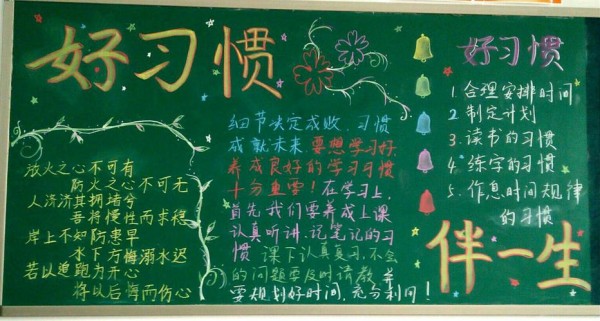 好习惯
放火之心不可有
防火之心不可无
人济济其拥堵兮
吾将慢性而求稳
岸上不知防患早
水下方悔溺水迟
若以追跑为开心
将以后悔而伤心
细节决定成败，习惯
成就未来 要想学习好，
养成良好的学习习惯
十分重要！在学习上，
首先我们要养成上课
认真听讲、记笔记的习
惯 课下认真复习，不会
的问题要及时请教，并
要规划好时间，充分利间！
好习惯
1.合理安排时间
2 制定计划
3.读书的习惯
4.练字的习惯
5.作息时间规律
的习惯
伴一生